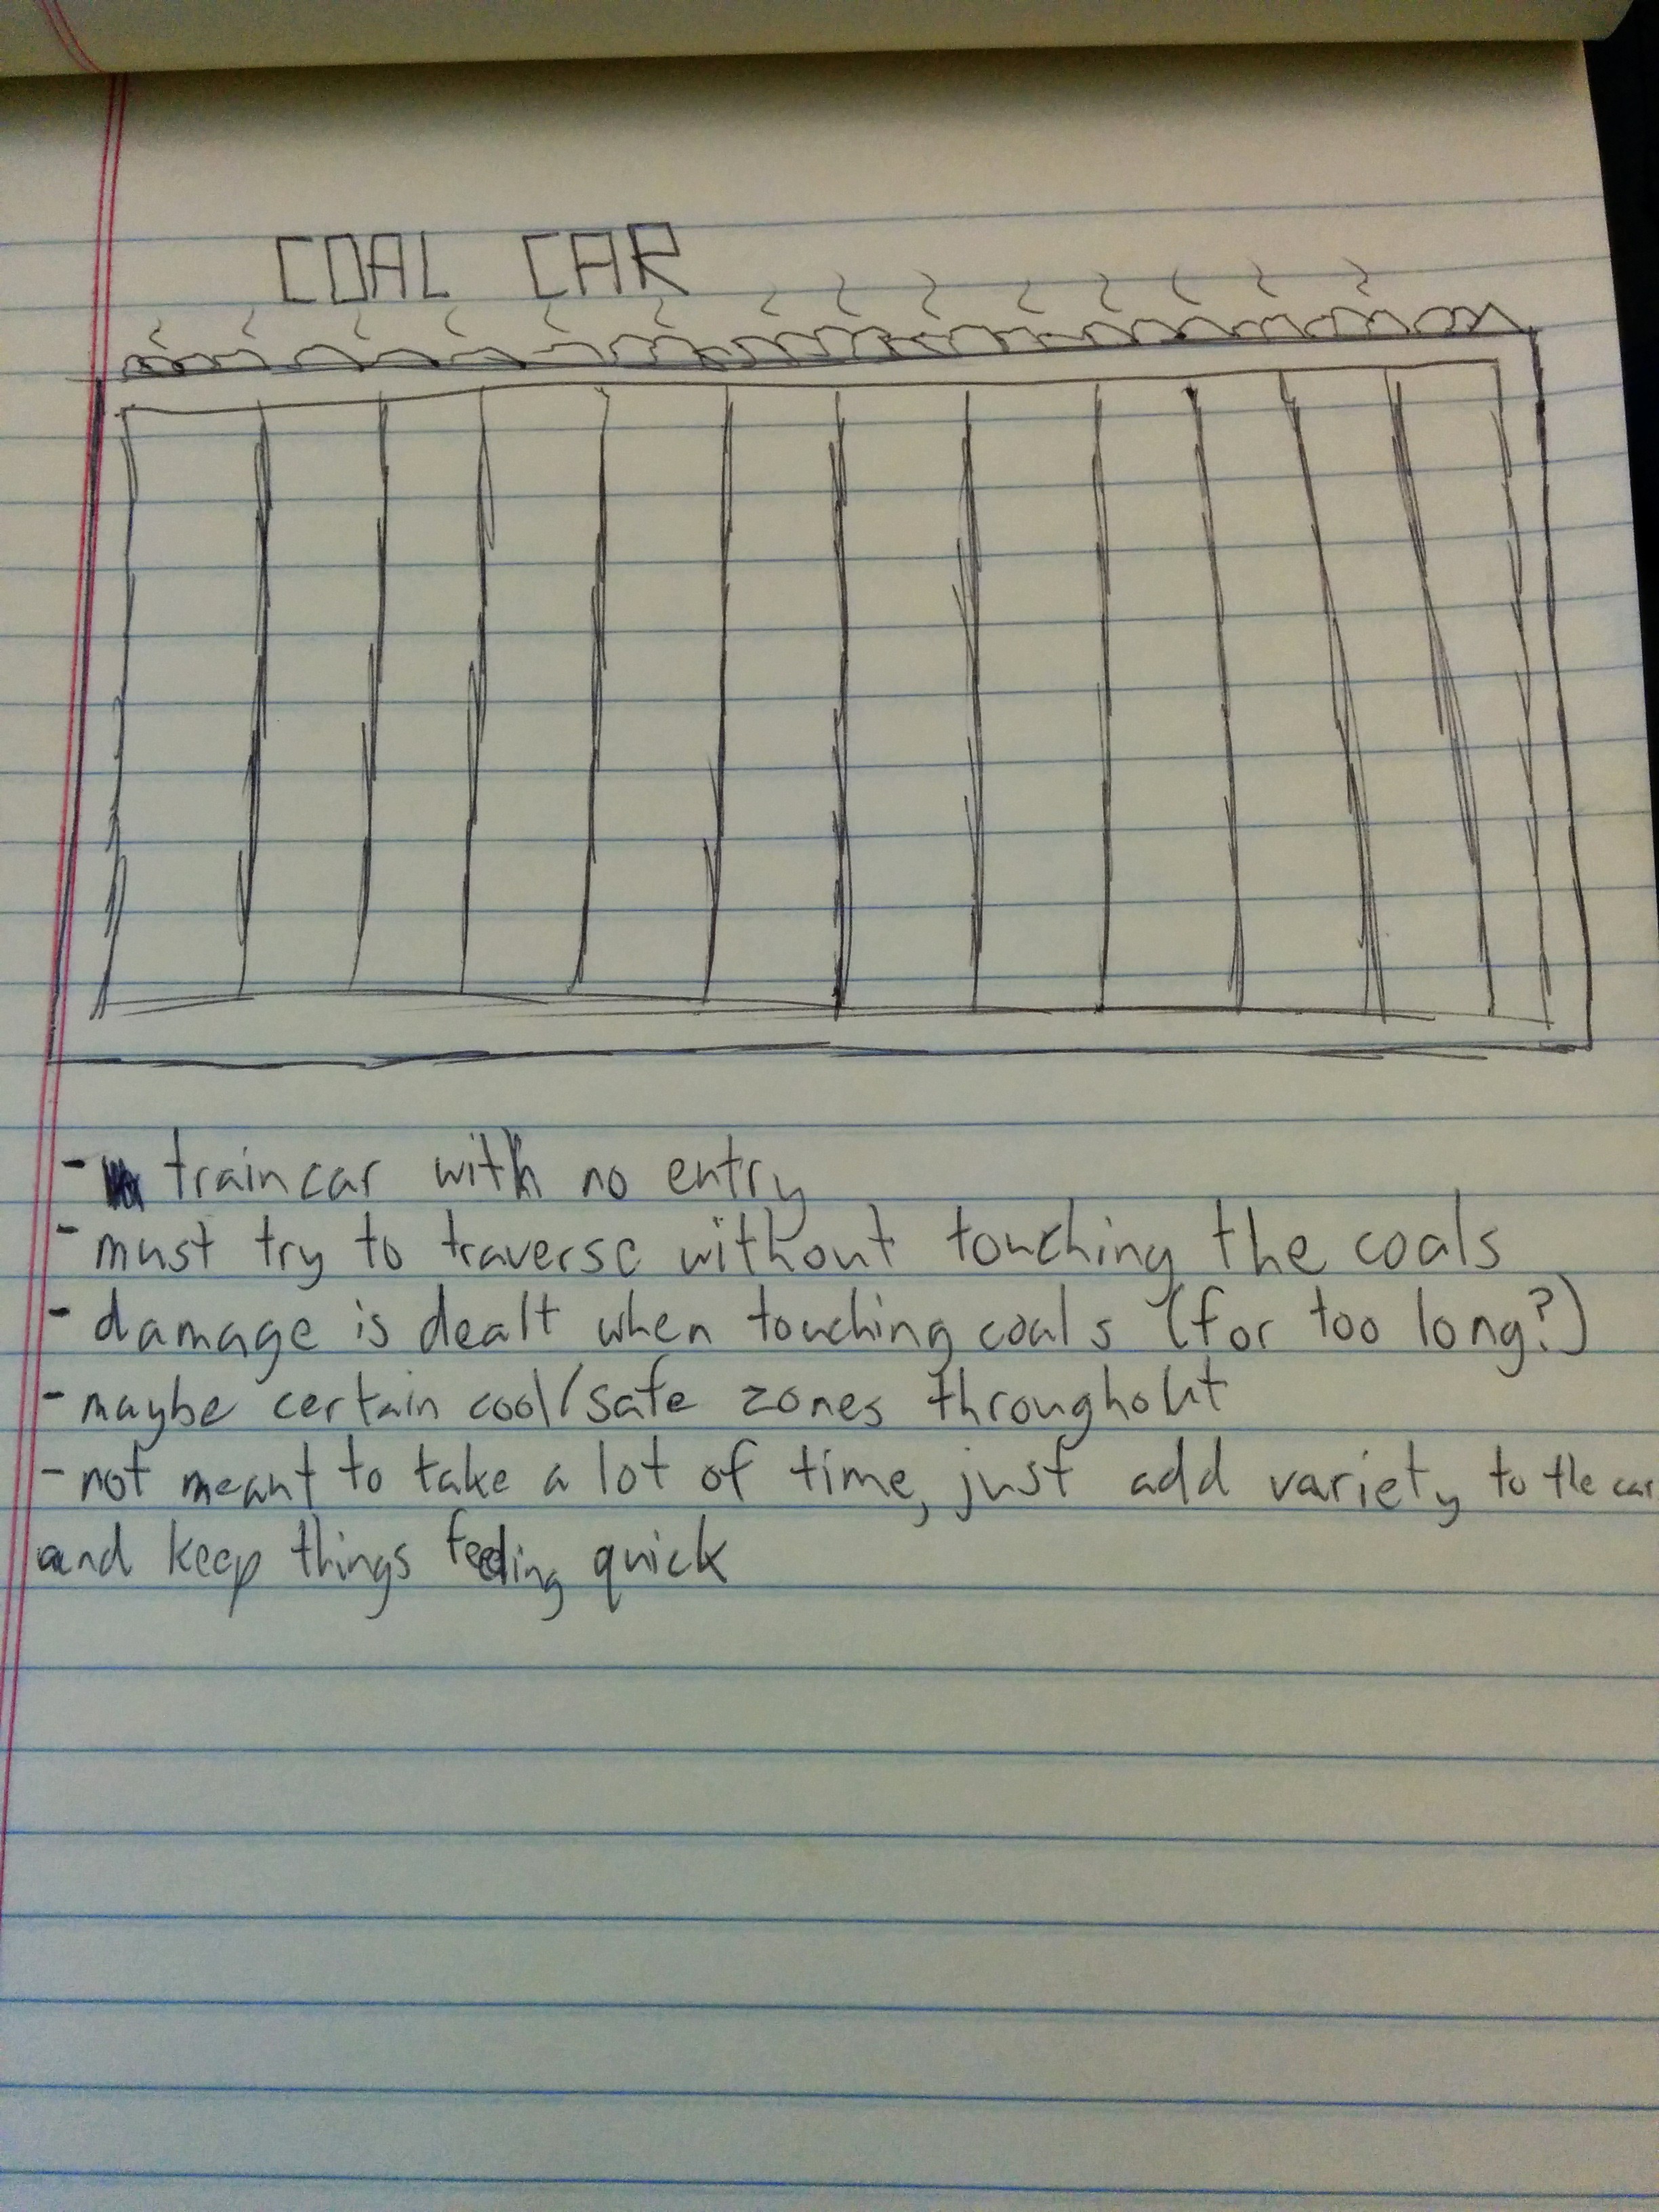 COAL CAR
- train car with no entry
- must try to traverse without touching the coals
- damage is dealt when touching coals (for too long?)
- maybe certain cool/safe zones throughout
- not meant to take a lot of time, just add variety to the car
and keep things feeling quick